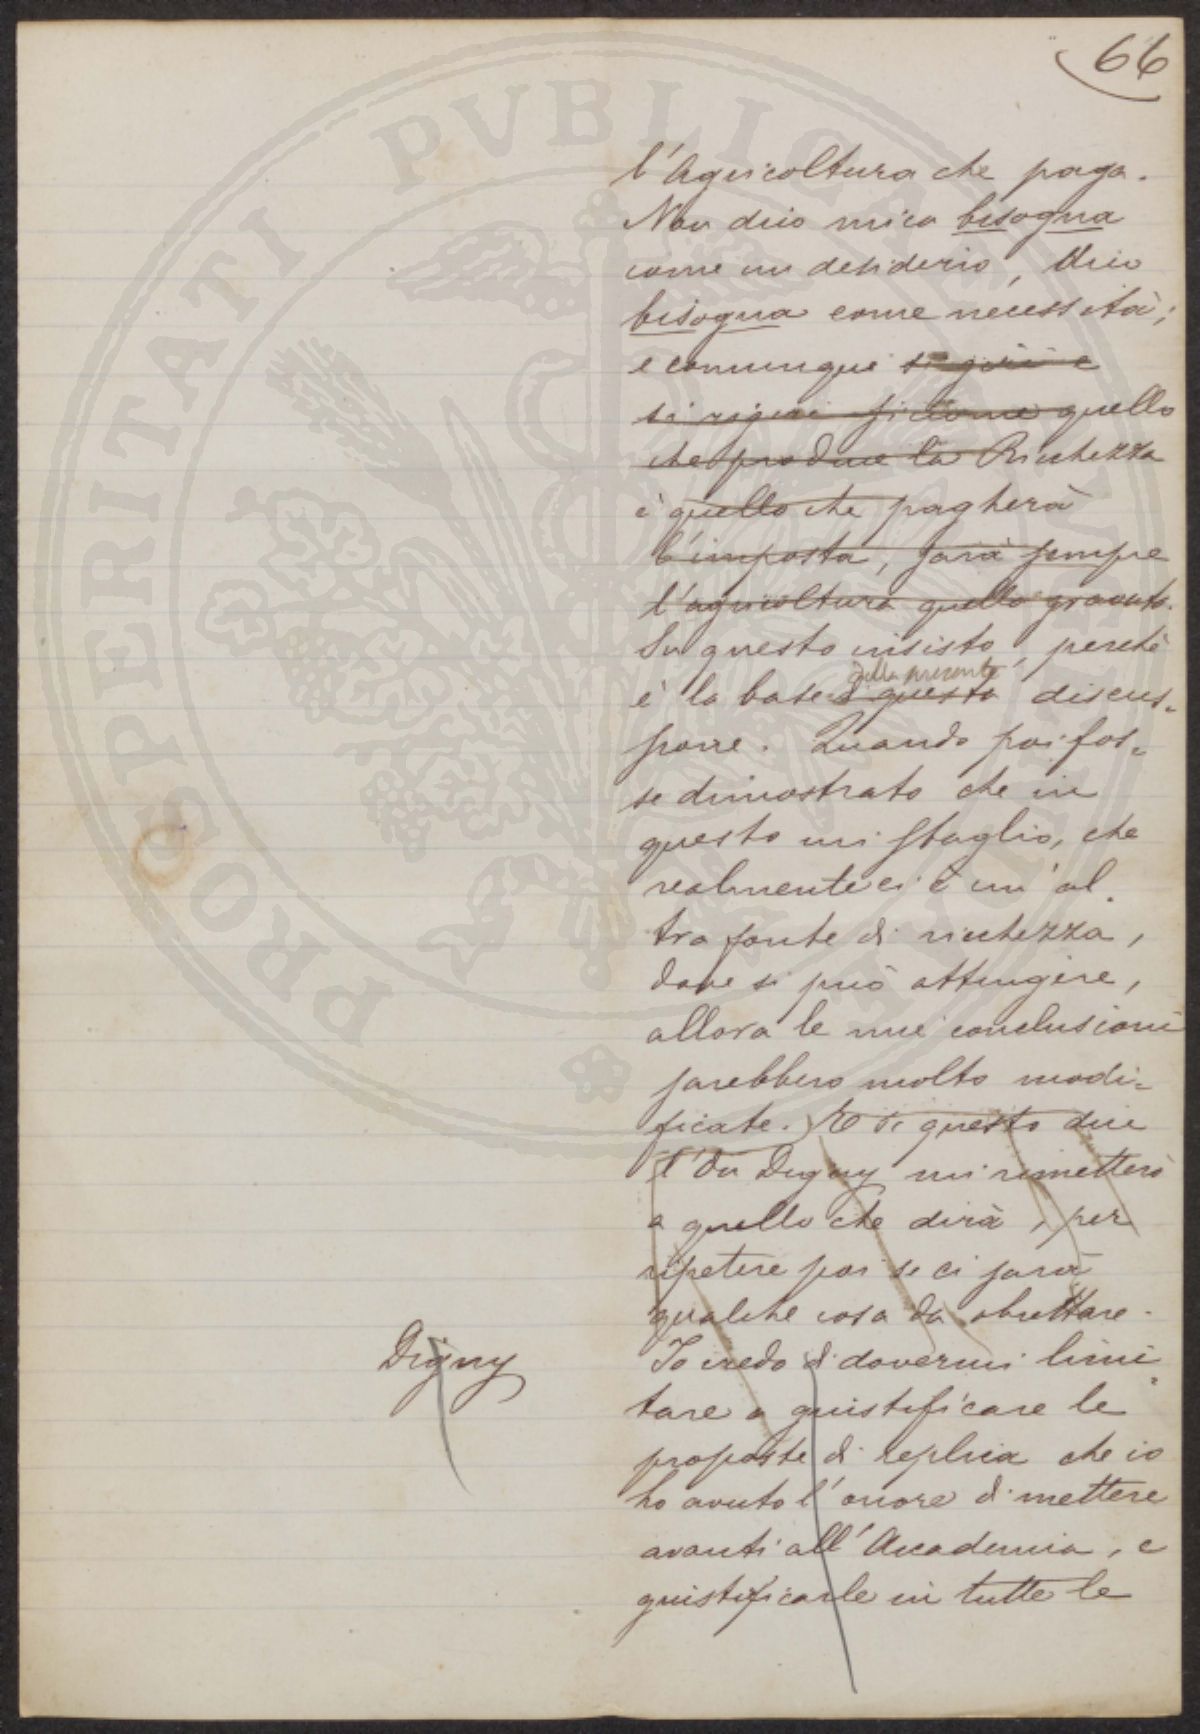 66
l'Agricoltura che paga.
Non dico mica bisogna
come un desiderio, dico
bisogna come necessità;
e comunque si giri e
si rigiri siccome quello
che produce la Ricchezza
è quello che pagherà
l'imposta, sarà sempre
l'agricoltura quella gravata.
Su questo insisto, perchè
della presente
è la base di questa discus=
sione. Quando poi fos=
se dimostrato che in
questo mi sbaglio, che
realmente ci è un'al=
tra fonte di ricchezza,
dove si può attingere,
allora le mie conclusioni
sarebbero molto modi=
ficate. E di questo dice
l'On Digny mi rimetterò
a quello che dirà, per
ripetere poi se ci sarà
qualche cosa da obiettare.
Digny
Io credo di dovermi limi=
tare a giustificare le
proposte di replica che io
ho avuto l'onore di mettere
avanti all'Accademia, e
giustificarle in tutte le
PROSPERITATI PVBLICAE